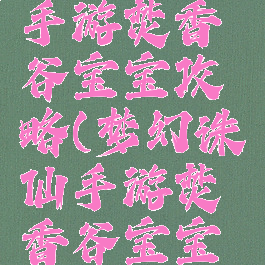 手游焚香
谷宝宝攻
略(梦幻诛
仙手游焚
香谷宝宝